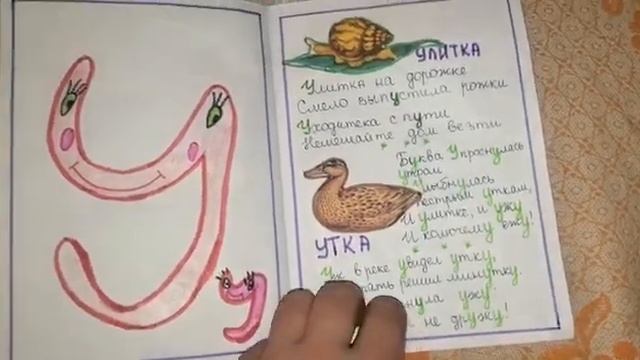 У
у
УЛИТКА
Улитка на дорожке
Смело выпустила рожки
Уходитека с пути
Немешайте дом везти
Буква У проснулась
утром
улыбнулась
пестрым уткам,
И улитке, и ужу
И колючему ежу!
УТКА
Уж в реке увидел утку,
решил минутку.
ужу:
не дружу!